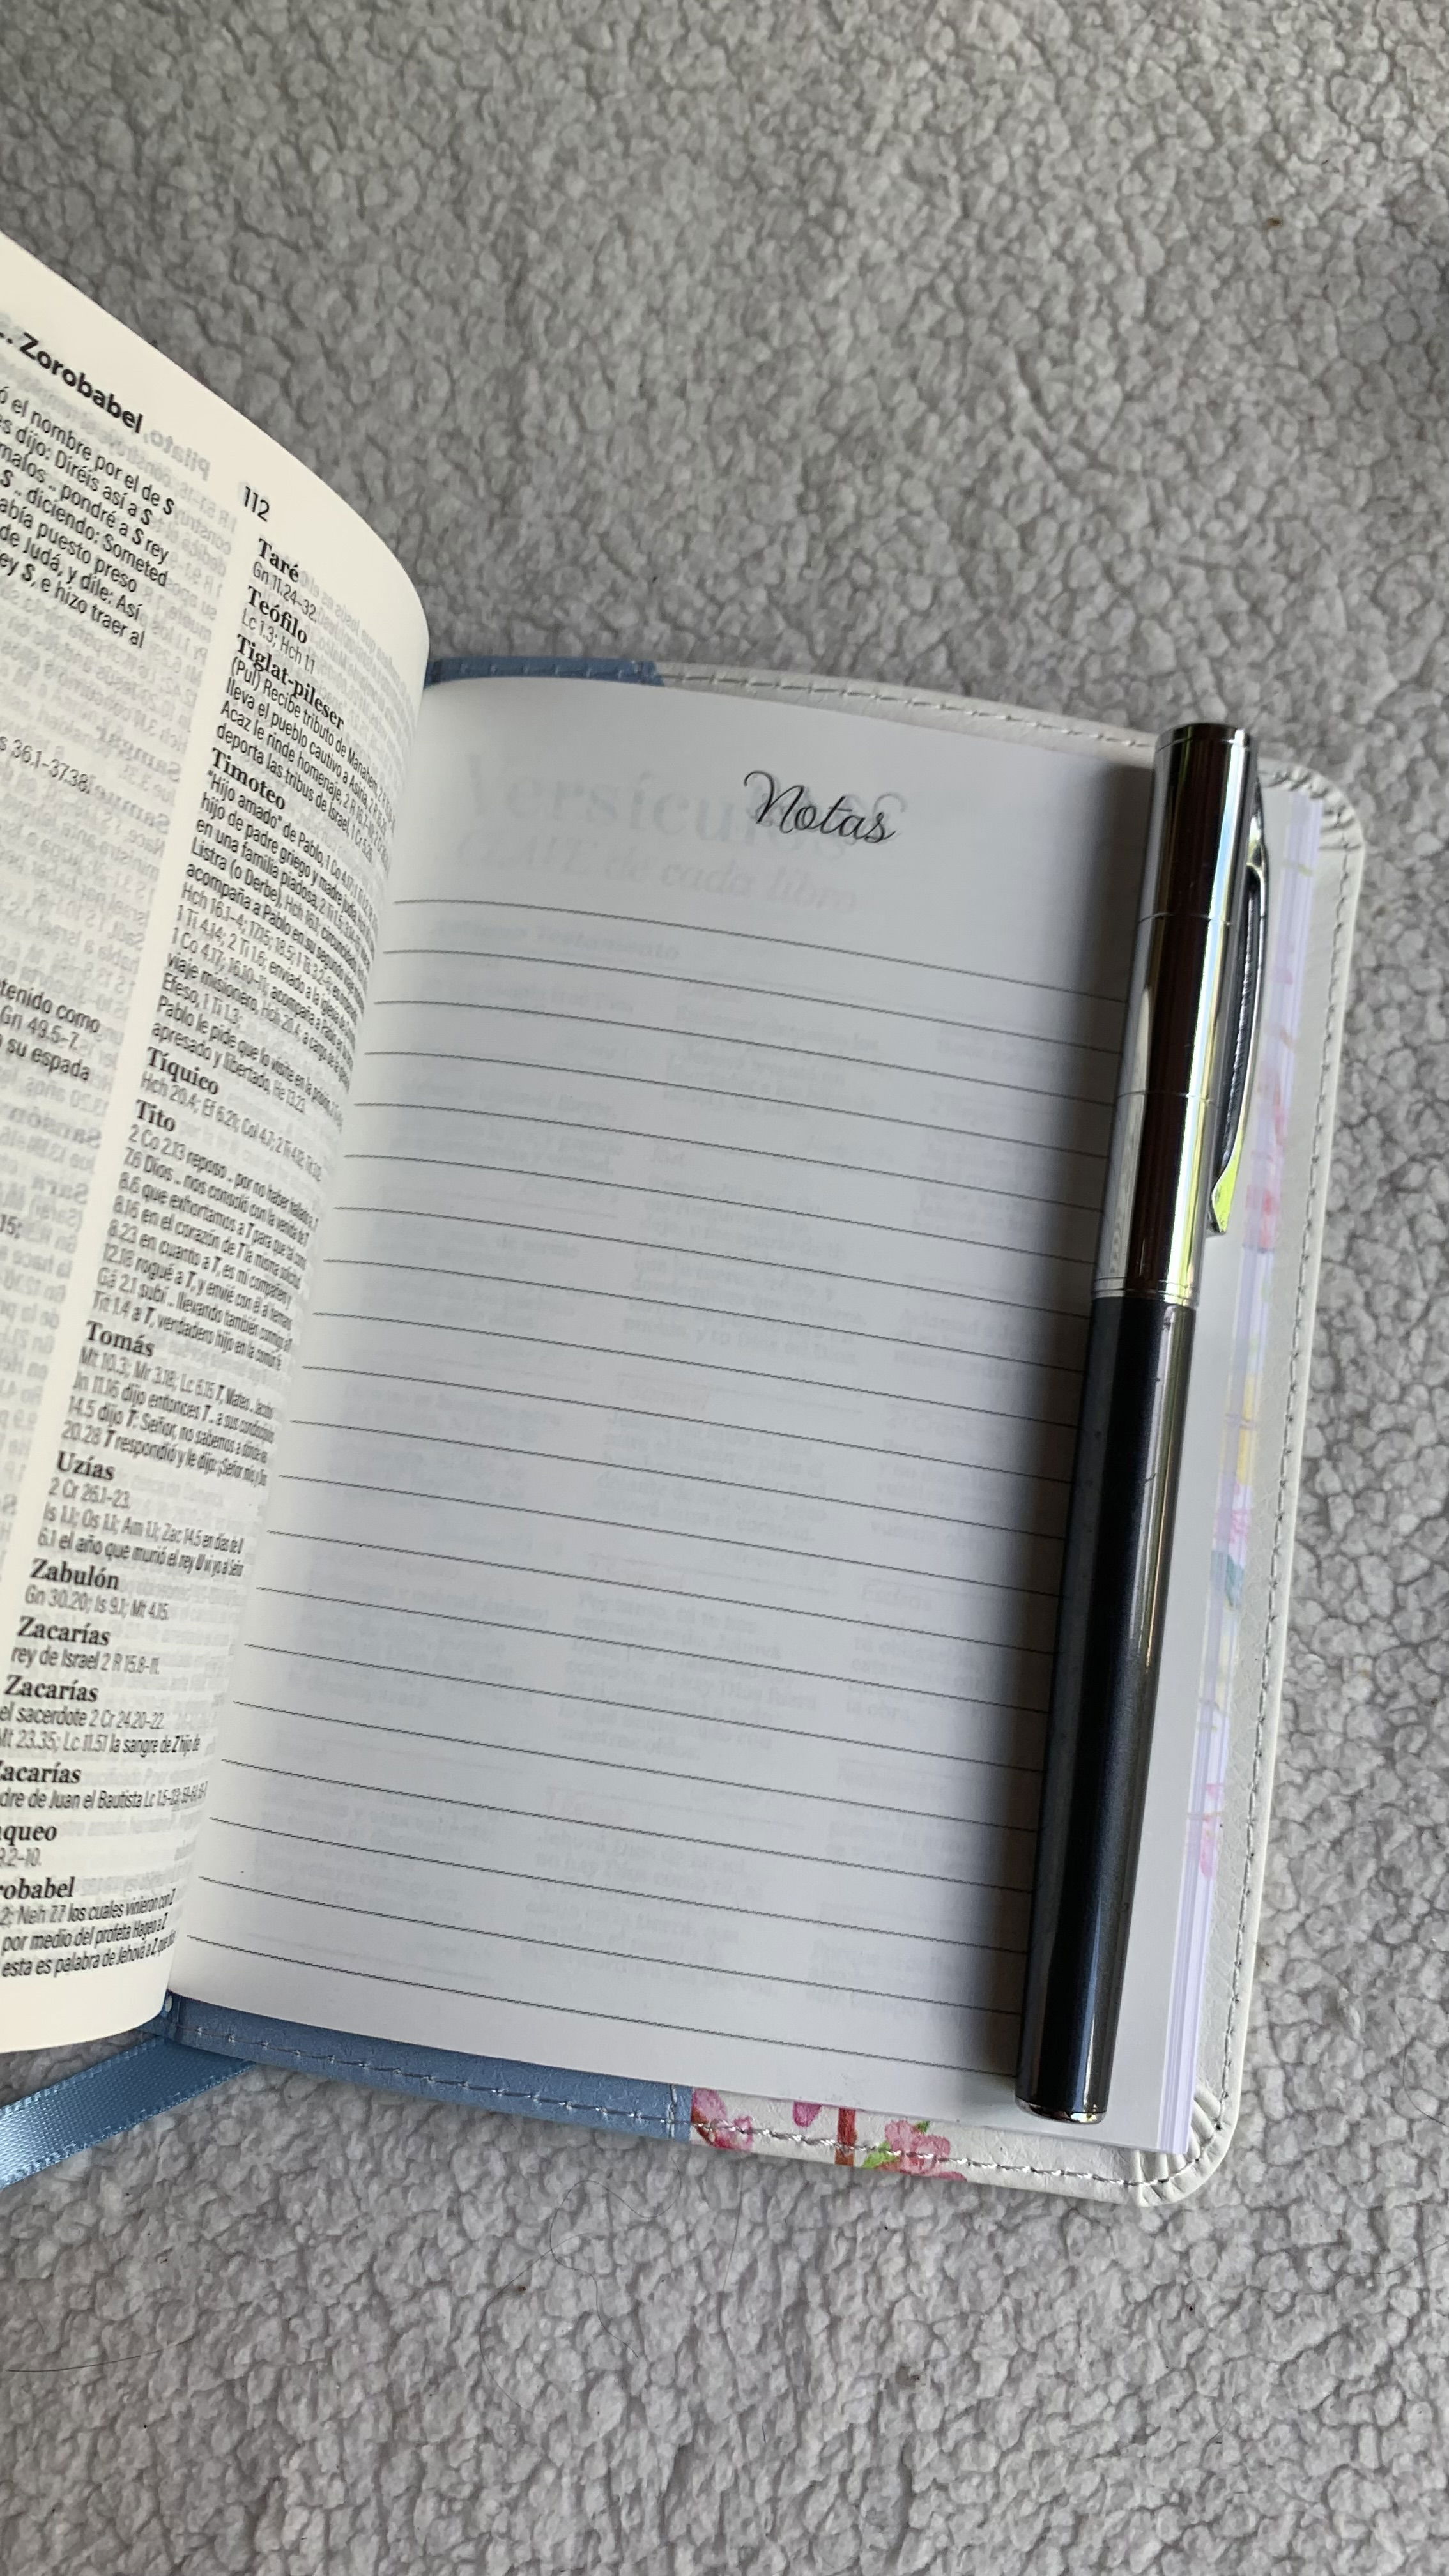 .. Zorobabel
ó el nombre por el de S
es dijo: Diréis así a S
malos .. pondré a S rey
S .. diciendo: Someted
abía puesto preso
de Judá, y dile: Así
ey S, e hizo traer al
s 36.1-37.38.
tenido como
Gn 49.5-7.
su espada
15;
112
Taré
Gn 11.24-32.
Teófilo
Lc 1.3; Hch 1.1
Tiglat-pileser
(Pul) Recibe tributo de Manahem, 2 R
lleva el pueblo cautivo a Asiria, 2 R
Acaz le rinde homenaje, 2 R 16.7
deporta las tribus de Israel, 1 Cr 5.26.
Timoteo
"Hijo amado" de Pablo, 1 Co 4.17;
hijo de padre griego y madre judía,
en una familia piadosa, 2 Ti 1.5;
Listra (o Derbe), Hch 16.1; circuncidado
acompaña a Pablo en su segundo viaje
Hch 16.1-4; 17.15; 18.5;
1 Ti 4.14; 2 Ti 1.6; enviado a la iglesia
1 Co 4.17; 16.10-11; acompaña a Pablo en su
viaje misionero, Hch 20.4; a cargo de la iglesia
Efeso, 1 Ti 1.3;
Pablo le pide que lo visite en la prisión,
apresado y libertado, He 13.23.
Tíquico
Hch 20.4; Ef 6.21; Col 4.7; 2 Ti 4.12; Tit 3.12.
Tito
2 Co 2.13 reposo .. por no haber hallado a T
7.6 Dios .. nos consoló con la venida de T
8.6 que exhortamos a T para que tal como
8.16 en el corazón de T la misma solicitud
8.23 en cuanto a T, es mi compañero y
12.18 rogué a T, y envié con él al hermano
Gá 2.1 subí .. llevando también conmigo a T
Tit 1.4 a T, verdadero hijo en la común fe
Tomás
Mt 10.3; Mr 3.18; Lc 6.15 T, Mateo .. Jacobo
Jn 11.16 dijo entonces T .. a sus condiscípulos
14.5 dijo T: Señor, no sabemos a dónde vas
20.28 T respondió y le dijo: ¡Señor mío, y Dios
Uzías
2 Cr 26.1-23.
Is 1.1; Os 1.1; Am 1.1; Zac 14.5 en días de U
6.1 el año que murió el rey U vi yo al Señor
Zabulón
Gn 30.20; Is 9.1; Mt 4.15.
Zacarías
rey de Israel 2 R 15.8-11.
Zacarías
el sacerdote 2 Cr 24.20-22.
Mt 23.35; Lc 11.51 la sangre de Z hijo de
acarías
dre de Juan el Bautista Lc 1.5-23;
queo
9.2-10.
robabel
2; Neh 7.7 los cuales vinieron con Z
por medio del profeta Hageo a Z
esta es palabra de Jehová a Z que
Notas